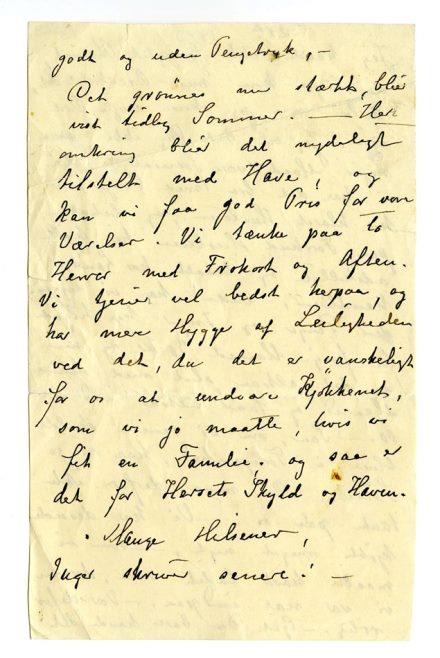 godt og uden Pengetryk, –
Det grønnes nu stærkt, blir
vist tidlig Sommer. – Her
omkring blir det nydeligt
tilstelt med Have, og
kan vi faa god Pris for vore
Værelser. Vi tænke paa to
Herrer med Frokost og Aften.
Vi tjener vel bedst herpaa, og
har mere Hygge af Leiligheden
ved det, da det er vanskeligt
for os at undvære Kjökkenet,
som vi jo maatte, hvis vi
fik en Familie, og saa er
det for Husets Skyld og Haven.
Mange Hilsener,
Inger skriver senere! –